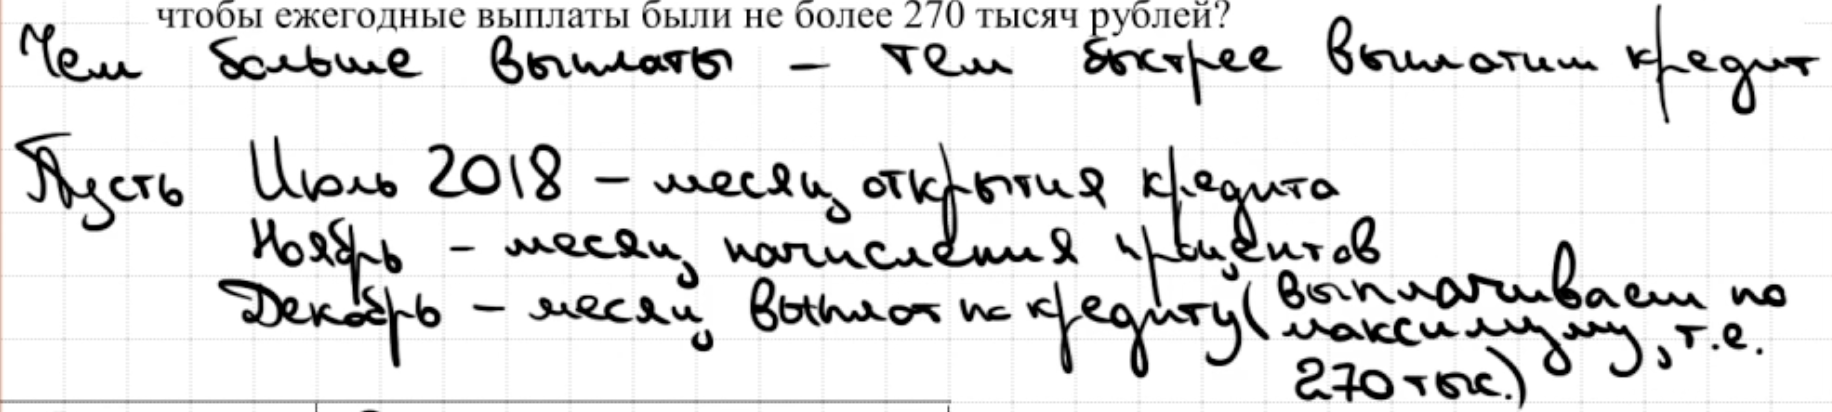 чтобы ежегодные выплаты были не более 270 тысяч рублей?
Чем больше выплаты – тем быстрее выплатим кредит
Пусть Июль 2018 – месяц открытия кредита
Ноябрь – месяц начисления процентов
Декабрь – месяц выплат по кредиту (выплачиваем по
максимуму, т.е.
270 тыс.)